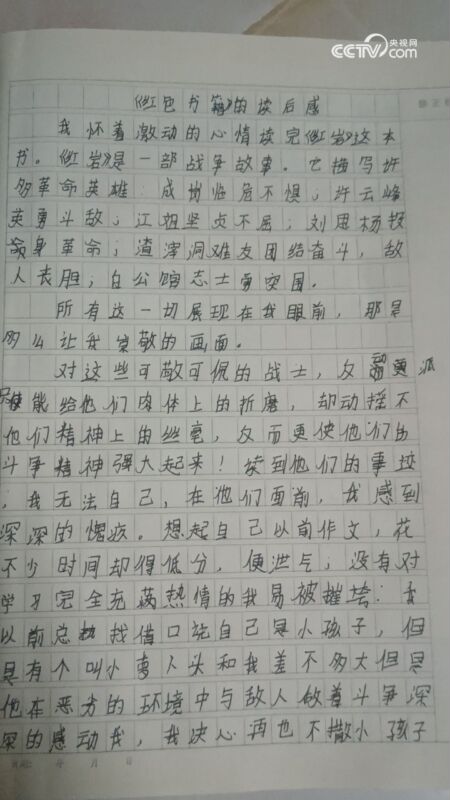 央视网
CCTV.com
《红色书籍》的读后感
我怀着激动的心情读完《红岩》这本
书。《红岩》是一部战争故事。它描写许
多革命英雄：成岗临危不惧；许云峰
英勇斗敌；江姐坚贞不屈；刘思杨投
身革命；渣滓洞难友团结奋斗，敌
人丧胆；白公馆志士勇突围。
所有这一切展现在我眼前，那是
多么让我崇敬的画面。
对这些可敬可佩的战士，反动派
只能给他们肉体上的折磨，却动摇不
他们精神上的丝毫，反而更使他们的
斗争精神强大起来！读到他们的事迹
，我无法自己，在他们面前，我感到
深深的愧疚。想起自己以前作文，花
不少时间却得低分，便泄气；没有对
学习完全充满热情的我易被摧垮：
以前总找借口说自己是小孩子，但
是有个叫小萝卜头和我差不多大但是
他在恶劣的环境中与敌人做着斗争深
深的感动我，我决心再也不撒小孩子
年 月 日